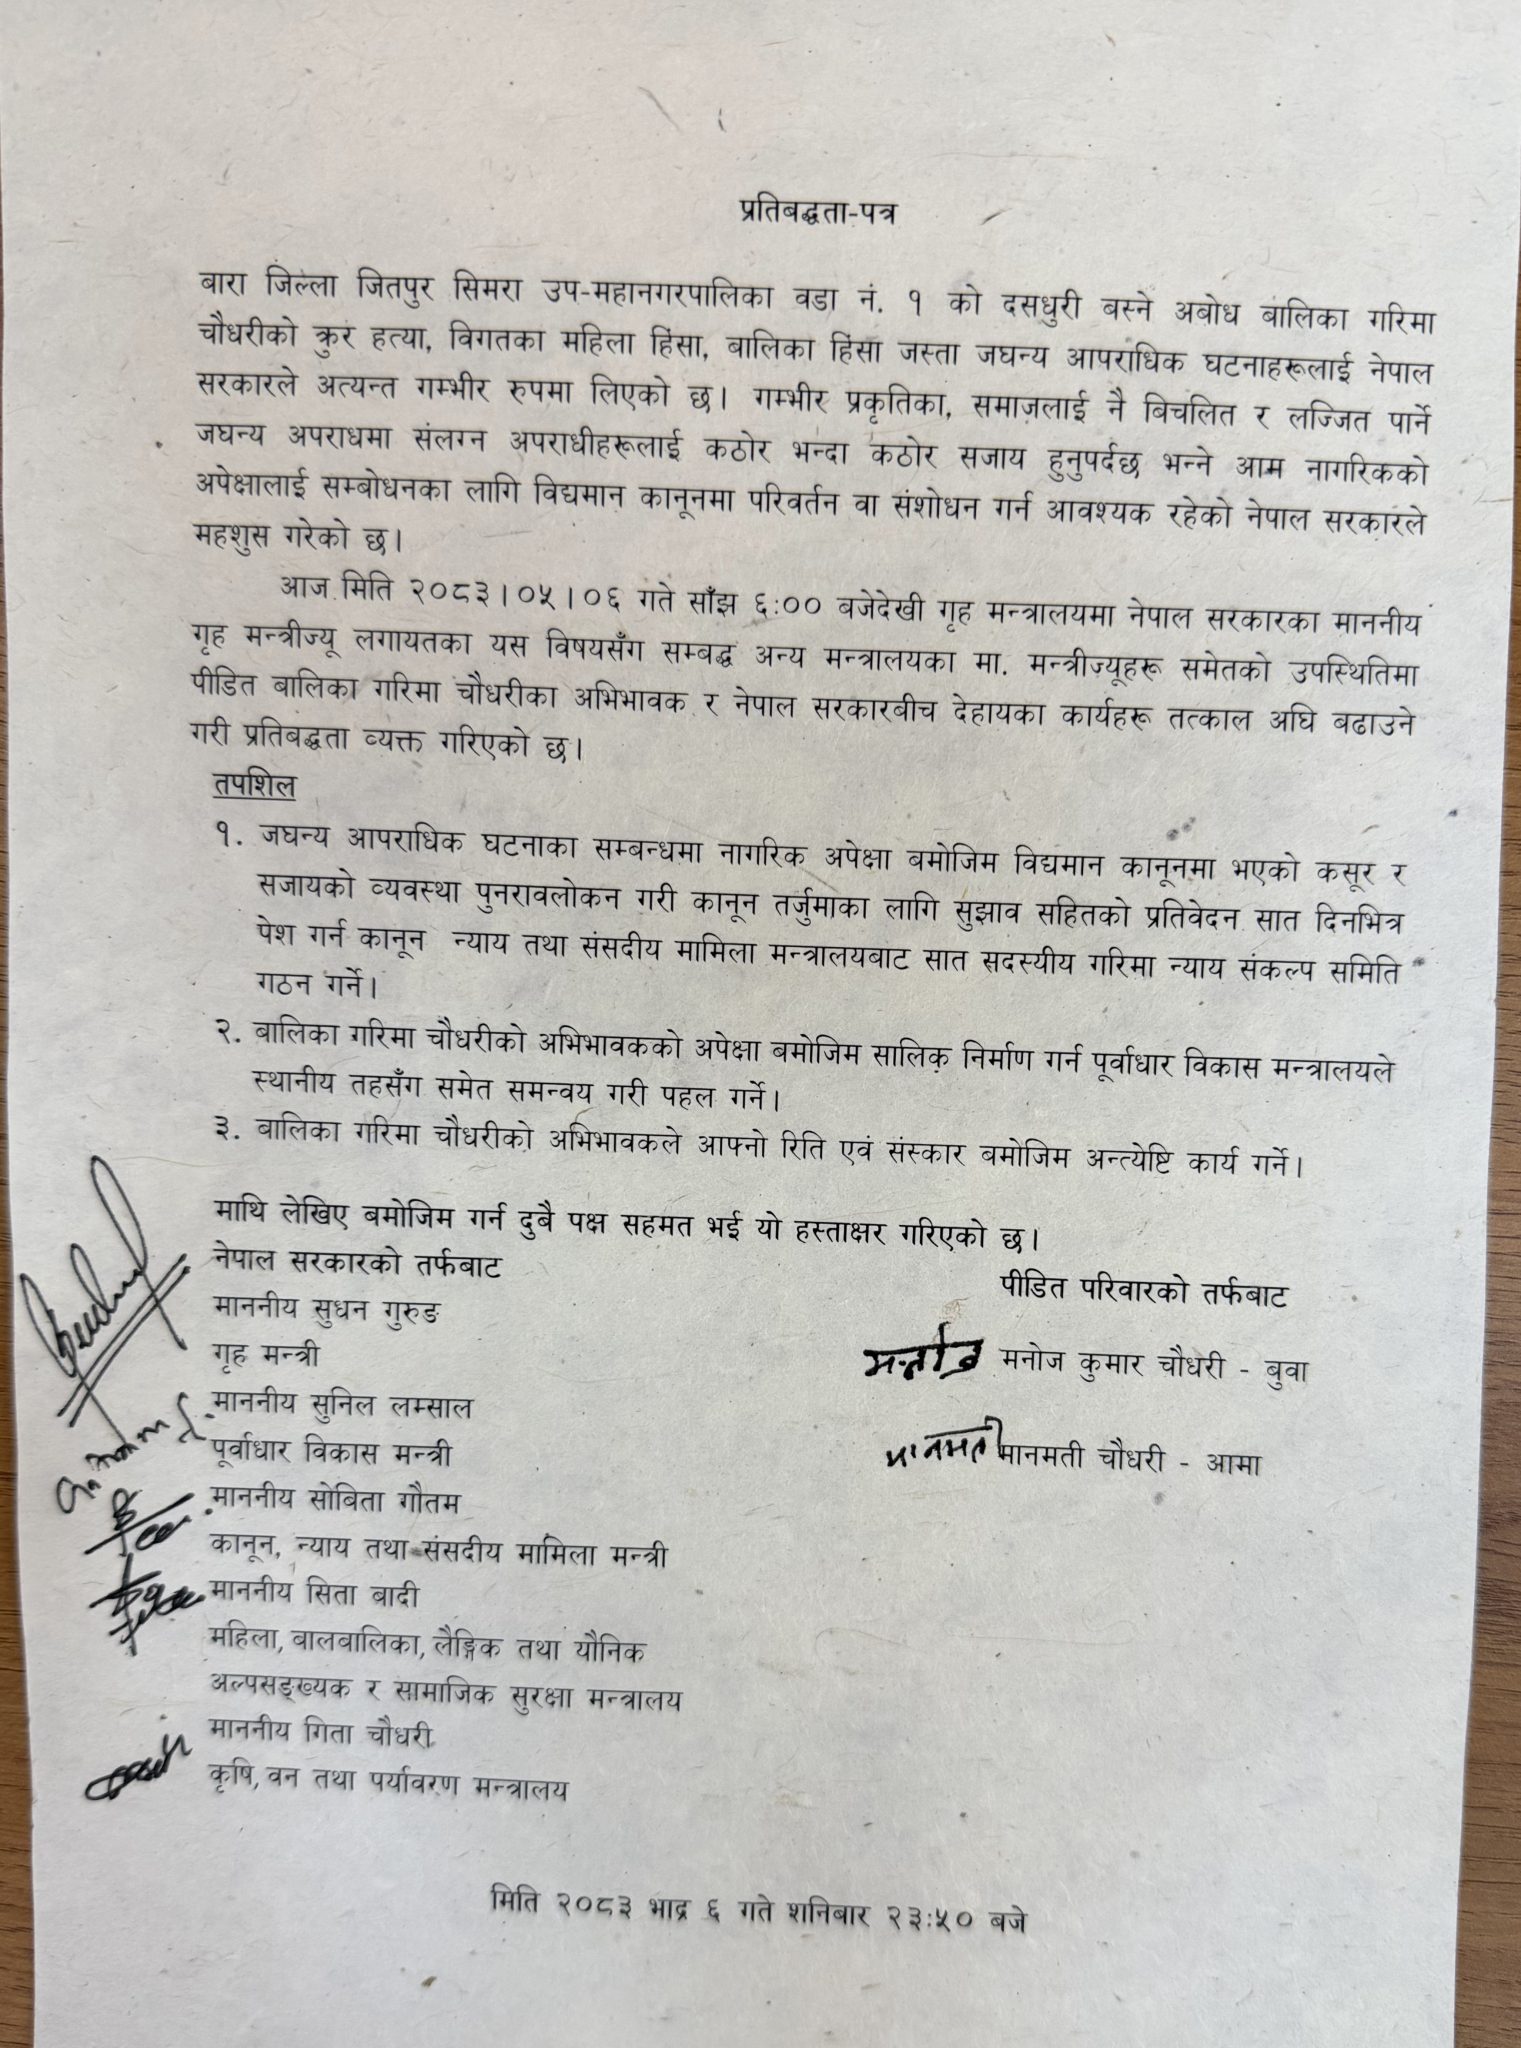 प्रतिबद्धता-पत्र
बारा जिल्ला जितपुर सिमरा उप-महानगरपालिका वडा नं. १ को दसधुरी बस्ने अबोध बालिका गरिमा
चौधरीको क्रुर हत्या, विगतका महिला हिंसा, बालिका हिंसा जस्ता जघन्य आपराधिक घटनाहरूलाई नेपाल
सरकारले अत्यन्त गम्भीर रुपमा लिएको छ। गम्भीर प्रकृतिका, समाजलाई नै बिचलित र लज्जित पार्ने
जघन्य अपराधमा संलग्न अपराधीहरूलाई कठोर भन्दा कठोर सजाय हुनुपर्दछ भन्ने आम नागरिकको
अपेक्षालाई सम्बोधनका लागि विद्यमान कानूनमा परिवर्तन वा संशोधन गर्न आवश्यक रहेको नेपाल सरकारले
महशुस गरेको छ।
आज मिति २०८३।०५।०६ गते साँझ ६:०० बजेदेखी गृह मन्त्रालयमा नेपाल सरकारका माननीय
गृह मन्त्रीज्यू लगायतका यस विषयसँग सम्बद्ध अन्य मन्त्रालयका मा. मन्त्रीज्यूहरू समेतको उपस्थितिमा
पीडित बालिका गरिमा चौधरीका अभिभावक र नेपाल सरकारबीच देहायका कार्यहरू तत्काल अघि बढाउने
गरी प्रतिबद्धता व्यक्त गरिएको छ।
तपशिल
१. जघन्य आपराधिक घटनाका सम्बन्धमा नागरिक अपेक्षा बमोजिम विद्यमान कानूनमा भएको कसूर र
सजायको व्यवस्था पुनरावलोकन गरी कानून तर्जुमाका लागि सुझाव सहितको प्रतिवेदन सात दिनभित्र
पेश गर्न कानून न्याय तथा संसदीय मामिला मन्त्रालयबाट सात सदस्यीय गरिमा न्याय संकल्प समिति
गठन गर्ने।
२. बालिका गरिमा चौधरीको अभिभावकको अपेक्षा बमोजिम सालिक निर्माण गर्न पूर्वाधार विकास मन्त्रालयले
स्थानीय तहसँग समेत समन्वय गरी पहल गर्ने।
३. बालिका गरिमा चौधरीको अभिभावकले आफ्नो रिति एवं संस्कार बमोजिम अन्त्येष्टि कार्य गर्ने।
माथि लेखिए बमोजिम गर्न दुबै पक्ष सहमत भई यो हस्ताक्षर गरिएको छ।
नेपाल सरकारको तर्फबाट
पीडित परिवारको तर्फबाट
माननीय सुधन गुरुङ
गृह मन्त्री
मनोज मनोज कुमार चौधरी - बुवा
माननीय सुनिल लम्साल
पूर्वाधार विकास मन्त्री
मानमती मानमती चौधरी - आमा
माननीय सोबिता गौतम
कानून, न्याय तथा संसदीय मामिला मन्त्री
माननीय सिता बादी
महिला, बालबालिका, लैङ्गिक तथा यौनिक
अल्पसङ्ख्यक र सामाजिक सुरक्षा मन्त्रालय
माननीय गिता चौधरी
कृषि, वन तथा पर्यावरण मन्त्रालय
मिति २०८३ भाद्र ६ गते शनिबार २३:५० बजे